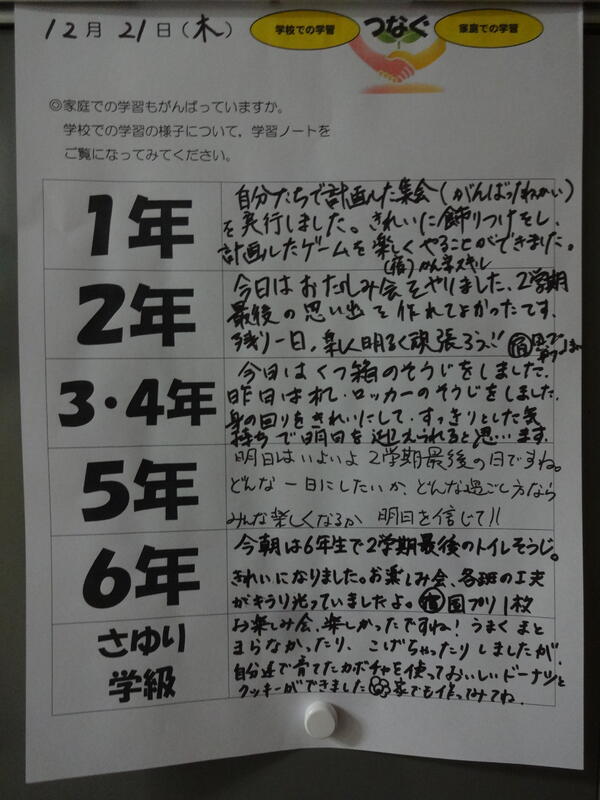 12月21日(木)
学校での学習 つなぐ 家庭での学習
◎家庭での学習もがんばっていますか。
学校での学習の様子について，学習ノートを
ご覧になってみてください。
1年
自分たちで計画した集会(がんばったねかい)
を実行しました。きれいに飾りつけをし、
計画したゲームを楽しくやることができました。
(宿)かん字スキル
2年
今日はお楽しみ会をやりました。2学期
最後の思い出を作れてよかったです。
残り一日,楽しく明るく頑張ろう!! 宿
3・4年
今日はくつ箱のそうじをしました。
昨日は机・ロッカーのそうじをしました。
身の回りをきれいにして、すっきりとした気
持ちで明日を迎えられると思います。
5年
明日はいよいよ2学期最後の日ですね。
どんな一日にしたいか、どんな過ごし方なら
みんな楽しくなるか 明日を信じて!!
6年
今朝は6年生で2学期最後のトイレそうじ。
きれいになりました。お楽しみ会、各班の工夫
がキラリ光っていましたよ。宿国プリ1枚
さゆり
学級
お楽しみ会、楽しかったですね！うまくまと
まらなかったり、こげちゃったりしましたが、
自分達で育てたカボチャを使っておいしいドーナツと
クッキーができました 家でも作ってみてね。